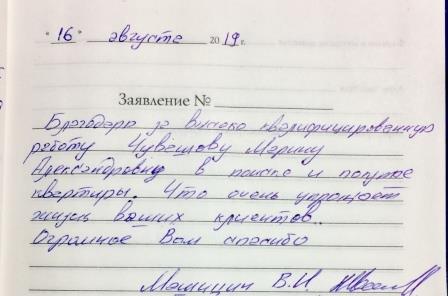 "16" августе 2019 г.
Заявление №
Благодарю за высоко квалифицированную
работу Чувешову Марину
Александровну в поиске и покупке
квартиры.. Что очень упрощает
жизнь ваших клиентов..
Огромное Вам спасибо
В.И.